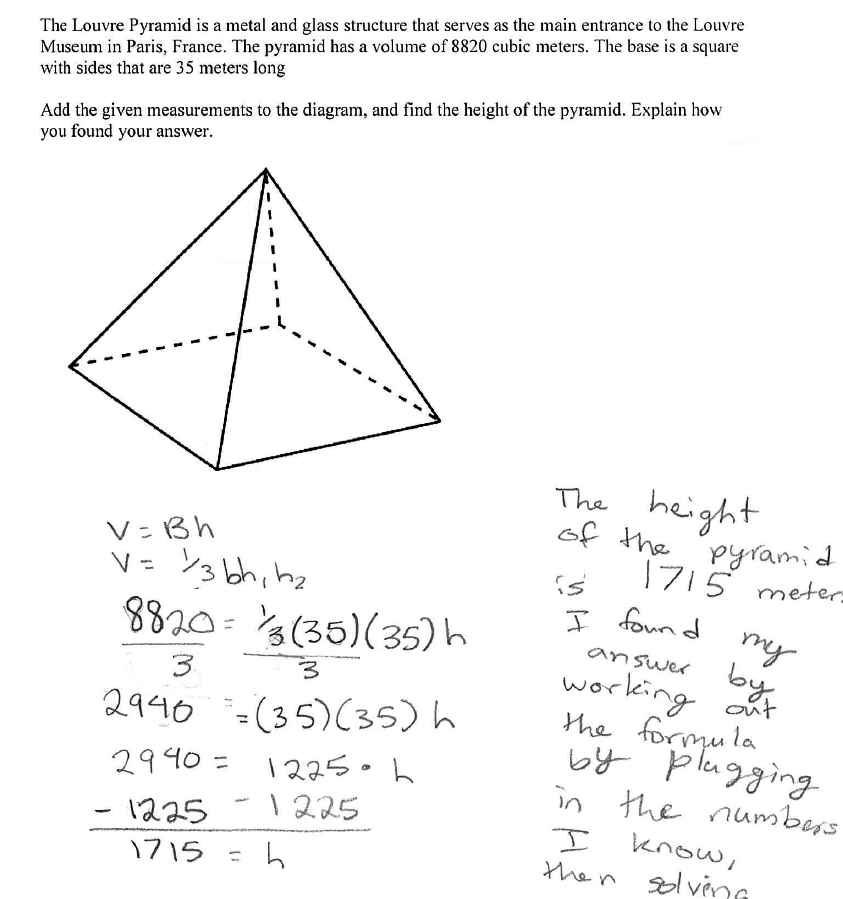 The Louvre Pyramid is a metal and glass structure that serves as the main entrance to the Louvre
Museum in Paris, France. The pyramid has a volume of 8820 cubic meters. The base is a square
with sides that are 35 meters long
Add the given measurements to the diagram, and find the height of the pyramid. Explain how
you found your answer.
V = Bh
V = 1/3 bh₁h₂
8820 = 1/3 (35)(35) h
3 3
2940 = (35)(35) h
2940 = 1225 • h
- 1225 - 1225
1715 = h
The height
of the pyramid
is 1715 meters
I found my
answer by
working out
the formula
by plugging
in the numbers
I know,
then solving